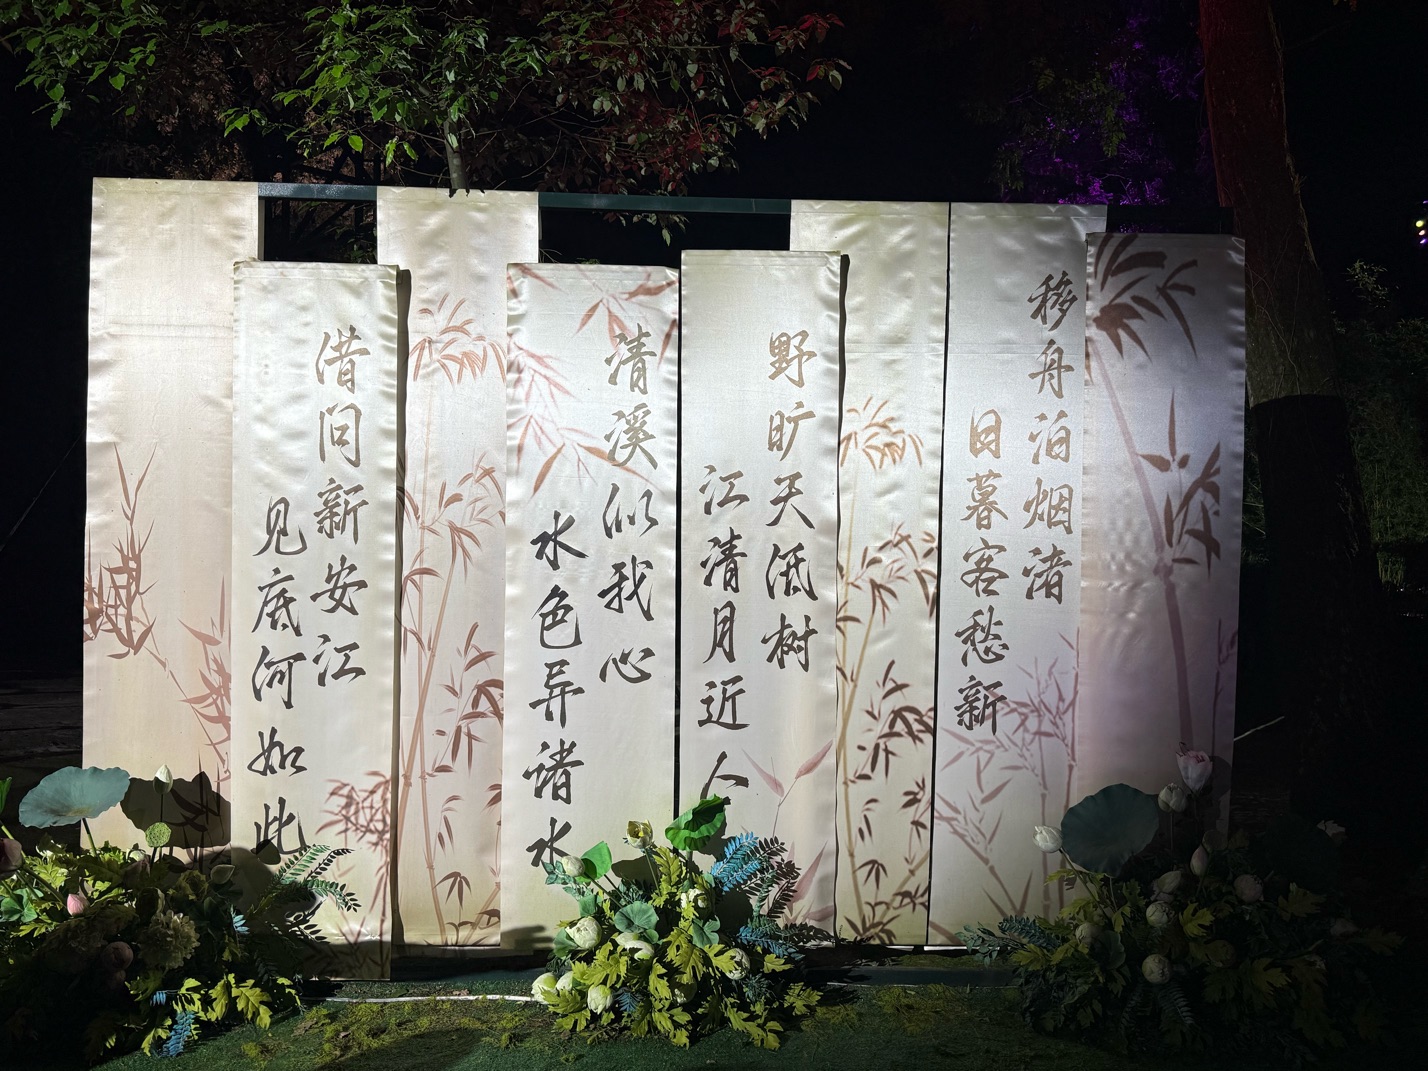 移舟泊烟渚
日暮客愁新
野旷天低树
江清月近人
清溪似我心
水色异诸水
借问新安江
见底何如此